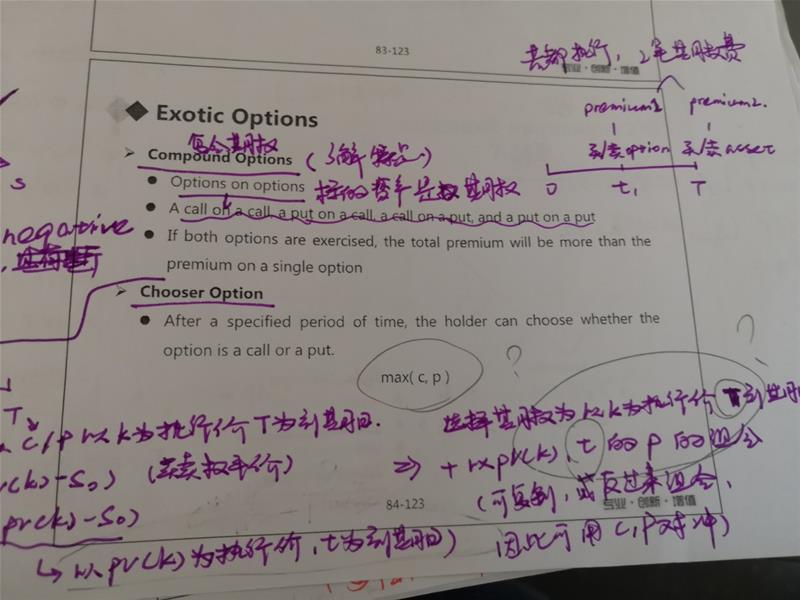 83-123
共都执行，2笔期权费
专业·创新·增值
premium1 premium2.
买/卖option 买/卖asset
0 t, T
Exotic Options
复合期权
Compound Options (了解 特点)
Options on options 标的资产是数期权
A call on a call, a put on a call, a call on a put, and a put on a put
If both options are exercised, the total premium will be more than the
premium on a single option
s
negative
Chooser Option
After a specified period of time, the holder can choose whether the
option is a call or a put.
max( c, p )
?
?
T
c/p 以k为执行价T为到期日.
(k)-S₀) (买卖权平价)
pv(k)-S₀)
选择期权为以k为执行价 T到期
⇒ + 以pv(k), t 的 p 的组合
(可复制, 或反过来组合,
因此可用 c, p对冲)
84-123
专业·创新·增值
↳ 以 pv(k) 为执行价, t为到期日)